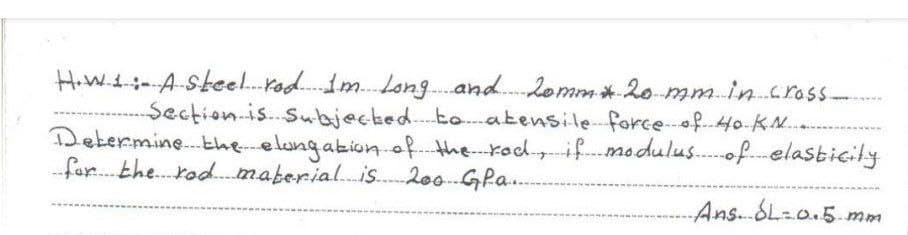 H.W.1:- A steel rod 1m long and 20mm * 20 mm in cross-
section is subjected to a tensile force of 40 KN.
Determine the elongation of the rod, if modulus of elasticity
for the rod material is 200 GPa.
Ans. δL=0.5 mm